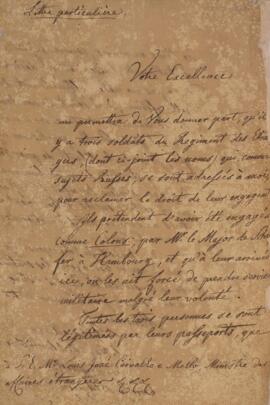 Lettre particulière
Votre Excellence
me permettra de Vous donner part, qu'il
y a trois soldats du Regiment des
(dont ci-joint les noms, qui, comme
sujets se sont adressés à moi
pour reclamer le droit de leur engagement
ils pretendent d'avoir été engagés
comme Colons, par Mr. le Major de
à Hambourg, et qu'à leur arrivée
ici, on les ait forcé de prendre service
militaire malgré leur volonté.
Toutes les trois personnes se sont
legitimées par leurs passeports, que
à S. E. Mr. Louis José Carvalho e Mello Ministre des
étrangères